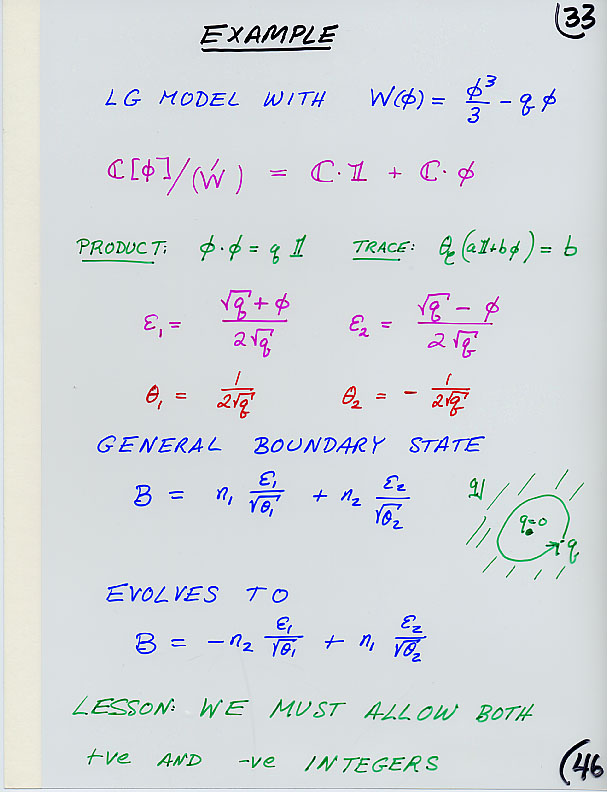 (33
EXAMPLE
LG MODEL WITH W(ϕ) = ϕ³/3 - qϕ
ℂ[ϕ]/(W′) = ℂ·𝟙 + ℂ·ϕ
PRODUCT: ϕ·ϕ = q 𝟙 TRACE: θ_C(a𝟙+bϕ) = b
ε₁ = (√q + ϕ)/(2√q) ε₂ = (√q - ϕ)/(2√q)
θ₁ = 1/(2√q) θ₂ = - 1/(2√q)
GENERAL BOUNDARY STATE
B = n₁ ε₁/√θ₁ + n₂ ε₂/√θ₂
q
q=0
q
EVOLVES TO
B = -n₂ ε₁/√θ₁ + n₁ ε₂/√θ₂
LESSON: WE MUST ALLOW BOTH
+ve AND -ve INTEGERS
(46